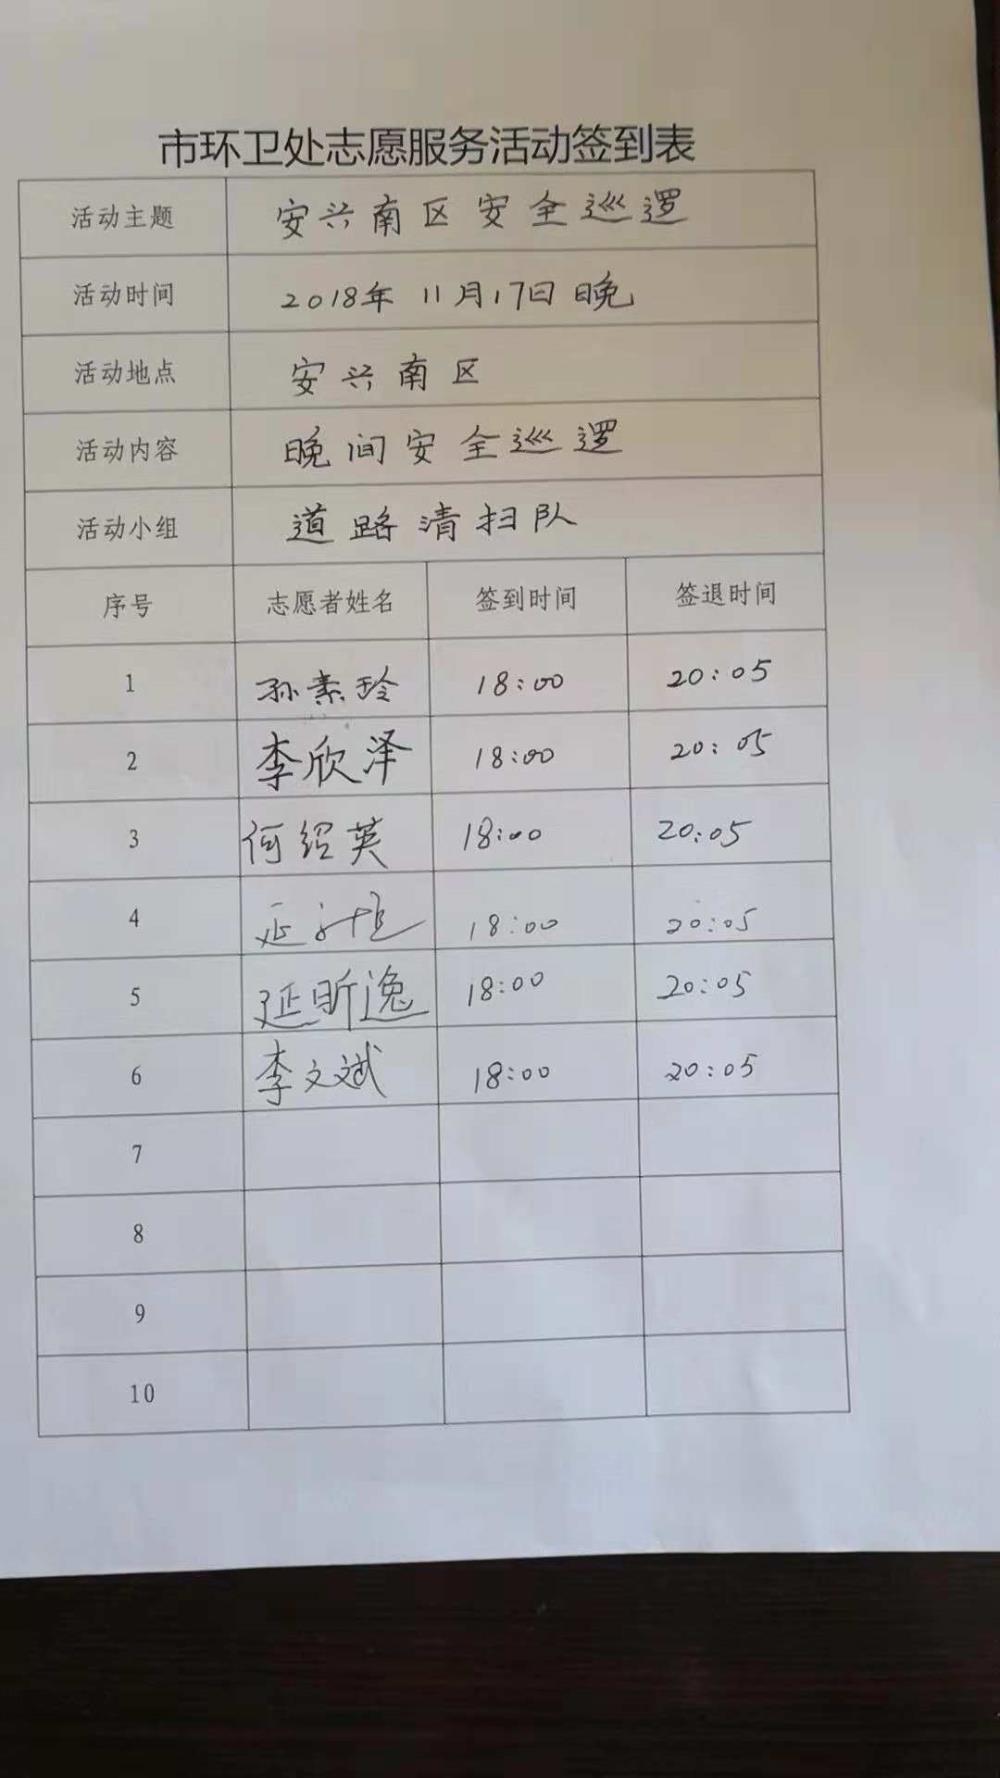 市环卫处志愿服务活动签到表
活动主题 安兴南区安全巡逻
活动时间 2018年11月17日晚
活动地点 安兴南区
活动内容 晚间安全巡逻
活动小组 道路清扫队
序号 志愿者姓名 签到时间 签退时间
1 孙素玲 18:00 20:05
2 李欣泽 18:00 20:05
3 何绍英 18:00 20:05
4 18:00 20:05
5 延昕逸 18:00 20:05
6 李文斌 18:00 20:05
7
8
9
10